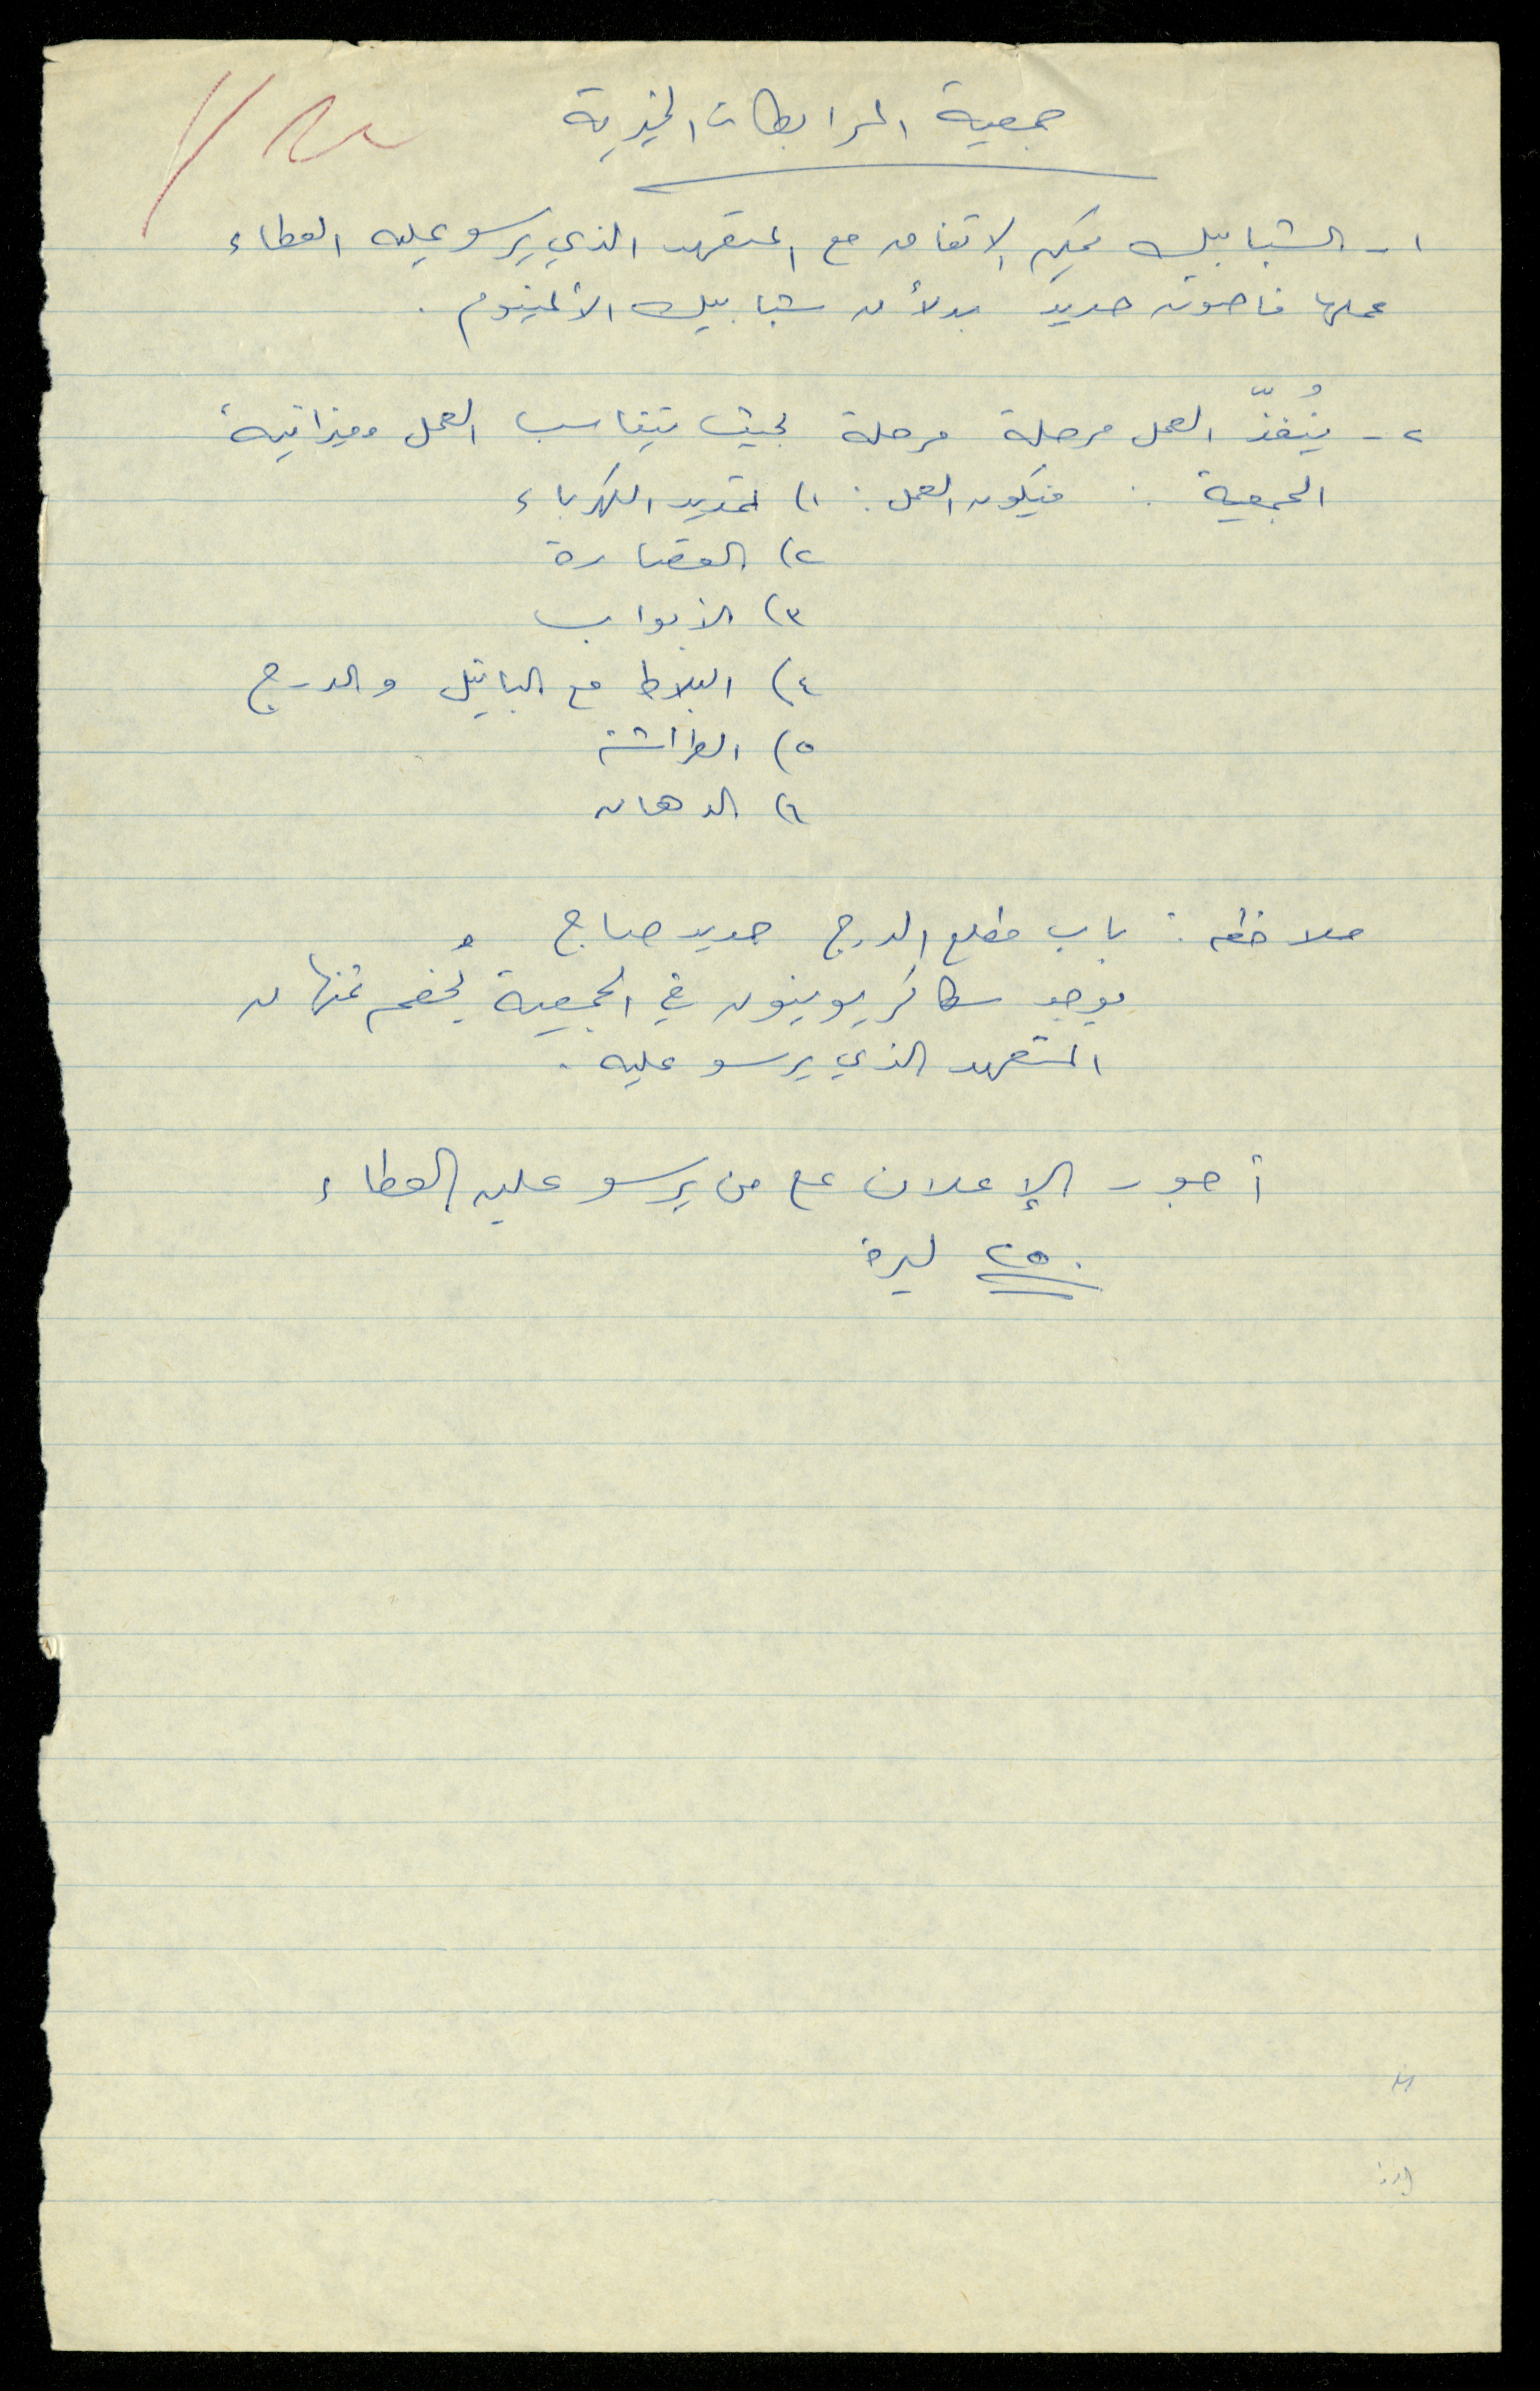 جمعية المرابطات الخيرية
١- الشبابيك يمكن الاتفاق مع المتعهد الذي يرسو عليه العطاء
عملها فاصون حديد بدلاً من شبابيك الألمنيوم .
٢- يُنفذّ العمل مرحلة مرحلة بحيث يتناسب العمل وميزانية
الجمعية : فيكون العمل : ١) تمديد الكهرباء
٢) القصارة
٣) الأبواب
٤) البلاط مع البانيل والدرج
٥) الطراشة
٦) الدهان
ملاحظة : باب مطلع الدرج حديد صاج
يوجد سكاكر يوينون في الجمعية يُخصم ثمنها من
المتعهد الذي يرسو عليه .
أجور الإعلان على من يرسو عليه العطاء
٢٥٠ ليرة